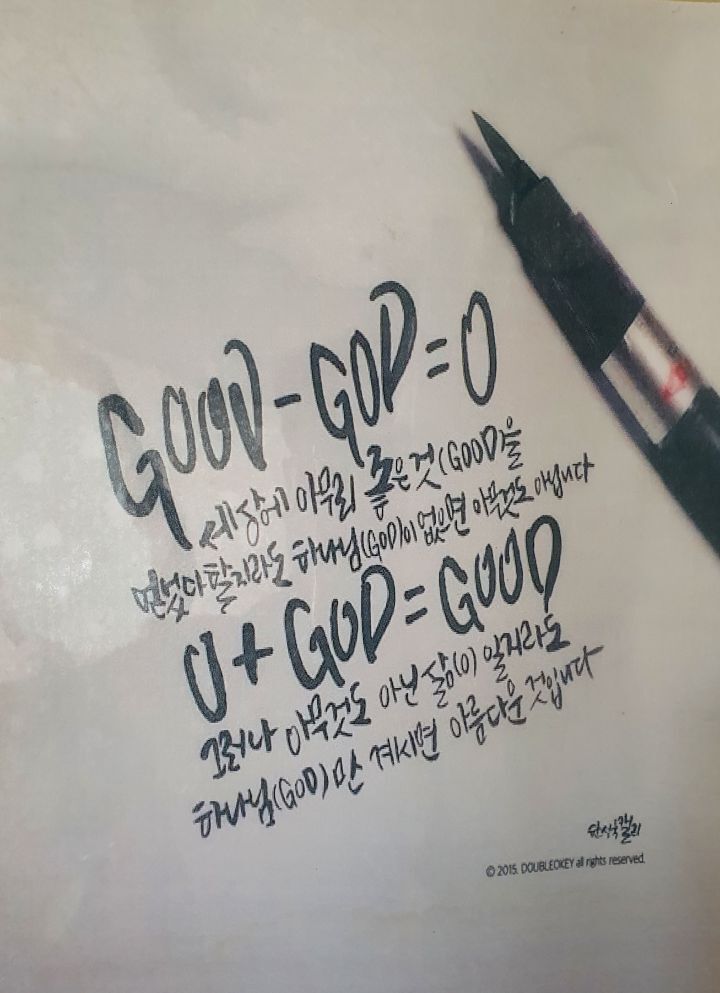 GOOD - GOD = 0
세상에 아무리 좋은 것(GOOD)을
얻었다 할지라도 하나님(GOD)이 없으면 아무것도 아닙니다
0 + GOD = GOOD
그러나 아무것도 아닌 삶(0)이 일지라도
하나님(GOD)만 계시면 아름다운 것입니다
© 2015. DOUBLEOKEY all rights reserved.